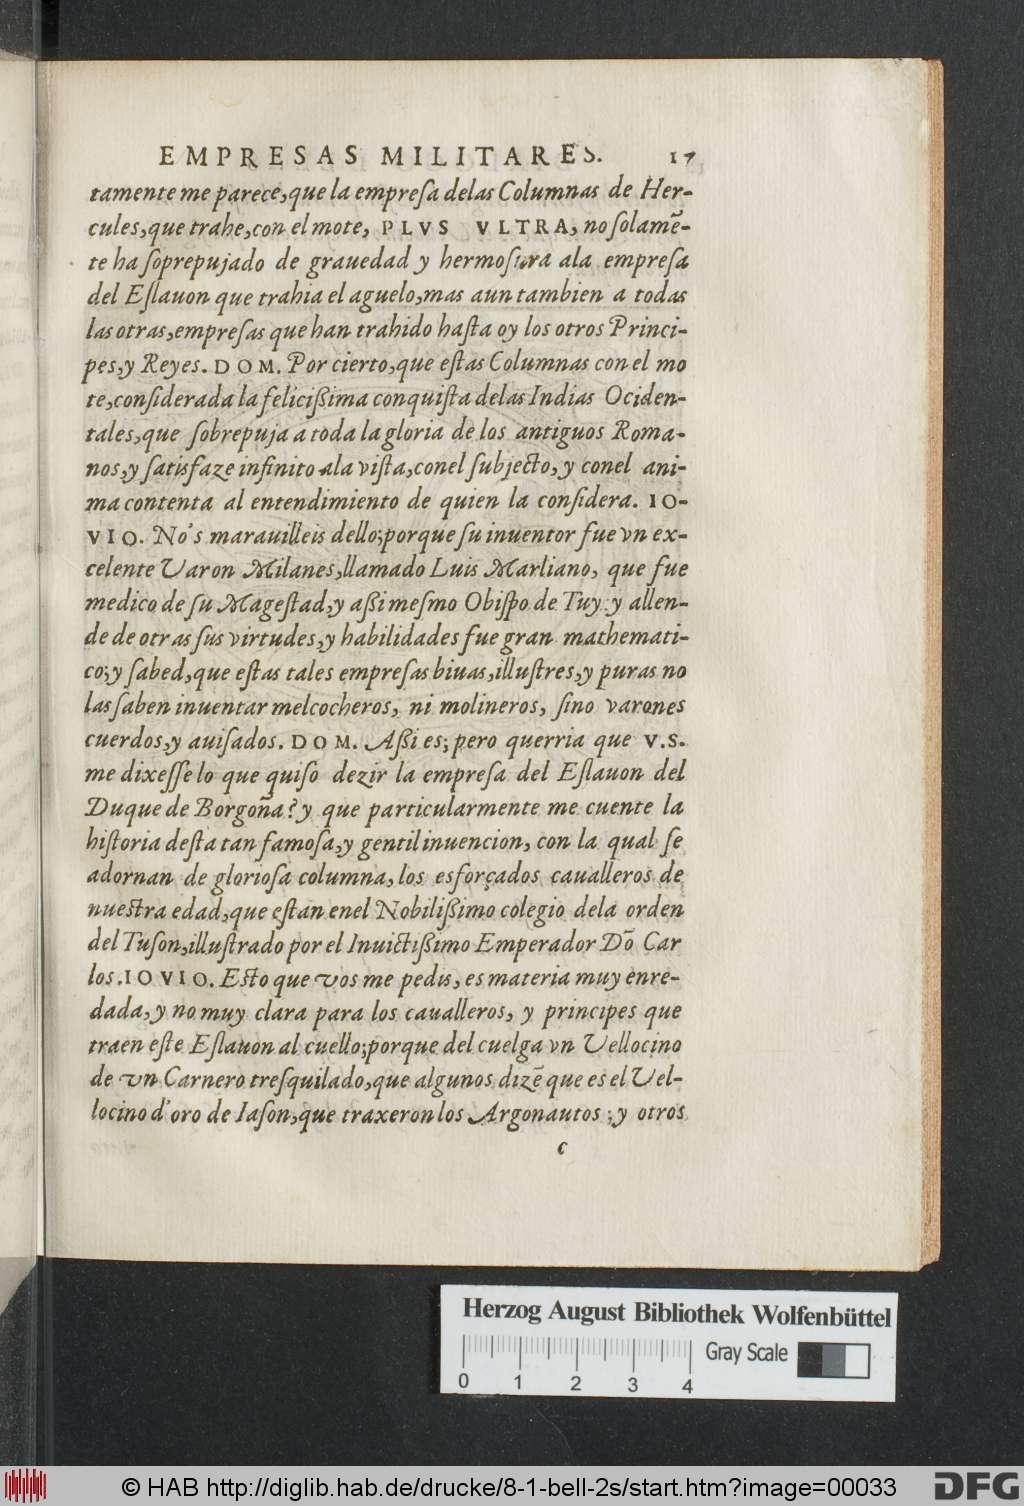 EMPRESAS MILITARES. 17
tamente me parece,que la empreſa delas Columnas de Her-
cules,que trahe,con el mote, PLVS VLTRA, no ſolamẽ-
te ha ſoprepujado de grauedad y hermoſura ala empreſa
del Eſlauon que trahia el aguelo,mas aun tambien a todas
las otras,empreſas que han trahido haſta oy los otros Princi-
pes,y Reyes. DOM. Por cierto,que eſtas Columnas con el mo
te,conſiderada la feliciſsima conquiſta delas Indias Ociden-
tales,que ſobrepuja a toda la gloria de los antiguos Roma-
nos,y ſatisfaze infinito ala viſta,conel ſubjecto,y conel ani-
ma contenta al entendimiento de quien la conſidera. IO-
VIO. No's marauilleis dello;porque ſu inuentor fue vn ex-
celente Varon Milanes,llamado Luis Marliano, que fue
medico de ſu Mageſtad,y aſsi meſmo Obiſpo de Tuy: y allen-
de de otras ſus virtudes,y habilidades fue gran mathemati-
co;y ſabed,que eſtas tales empreſas biuas,illuſtres,y puras no
las ſaben inuentar melcocheros, ni molineros, ſino varones
cuerdos,y auiſados. DOM. Aſsi es; pero querria que V.S.
me dixeſſe lo que quiſo dezir la empreſa del Eſlauon del
Duque de Borgoña? y que particularmente me cuente la
hiſtoria deſta tan famoſa,y gentil inuencion, con la qual ſe
adornan de glorioſa columna, los esforçados caualleros de
nueſtra edad,que eſtan enel Nobiliſsimo colegio dela orden
del Tuſon,illuſtrado por el Inuictiſsimo Emperador Dõ Car
los. IOVIO. Eſto que vos me pedis, es materia muy enre-
dada, y no muy clara para los caualleros, y principes que
traen eſte Eſlauon al cuello;porque del cuelga vn Vellocino
de vn Carnero treſquilado,que algunos dizẽ que es el Vel-
locino d'oro de Iaſon,que traxeron los Argonautos ; y otros
c
Herzog August Bibliothek Wolfenbüttel
Gray Scale
0 1 2 3 4
© HAB http://diglib.hab.de/drucke/8-1-bell-2s/start.htm?image=00033
DFG